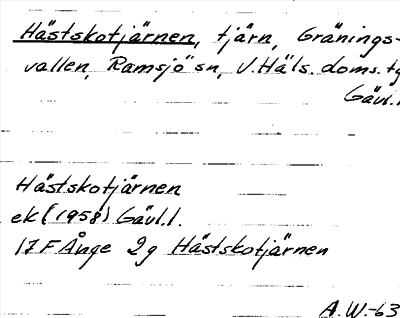 Hästskotjärnen, tjärn, Gränings-
vallen, Ramsjö sn, V. Häls. doms. tg
Gävl. l
Hästskotjärnen
ek (1958) Gävl. l.
17F Ånge 2g Hästskotjärnen
A.W.-63